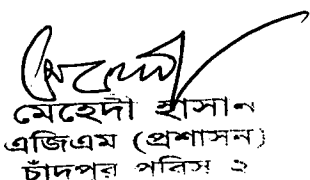 মেহেদী হাসান
এজিএম (প্রশাসন)
চাঁদপুর পবিস ২